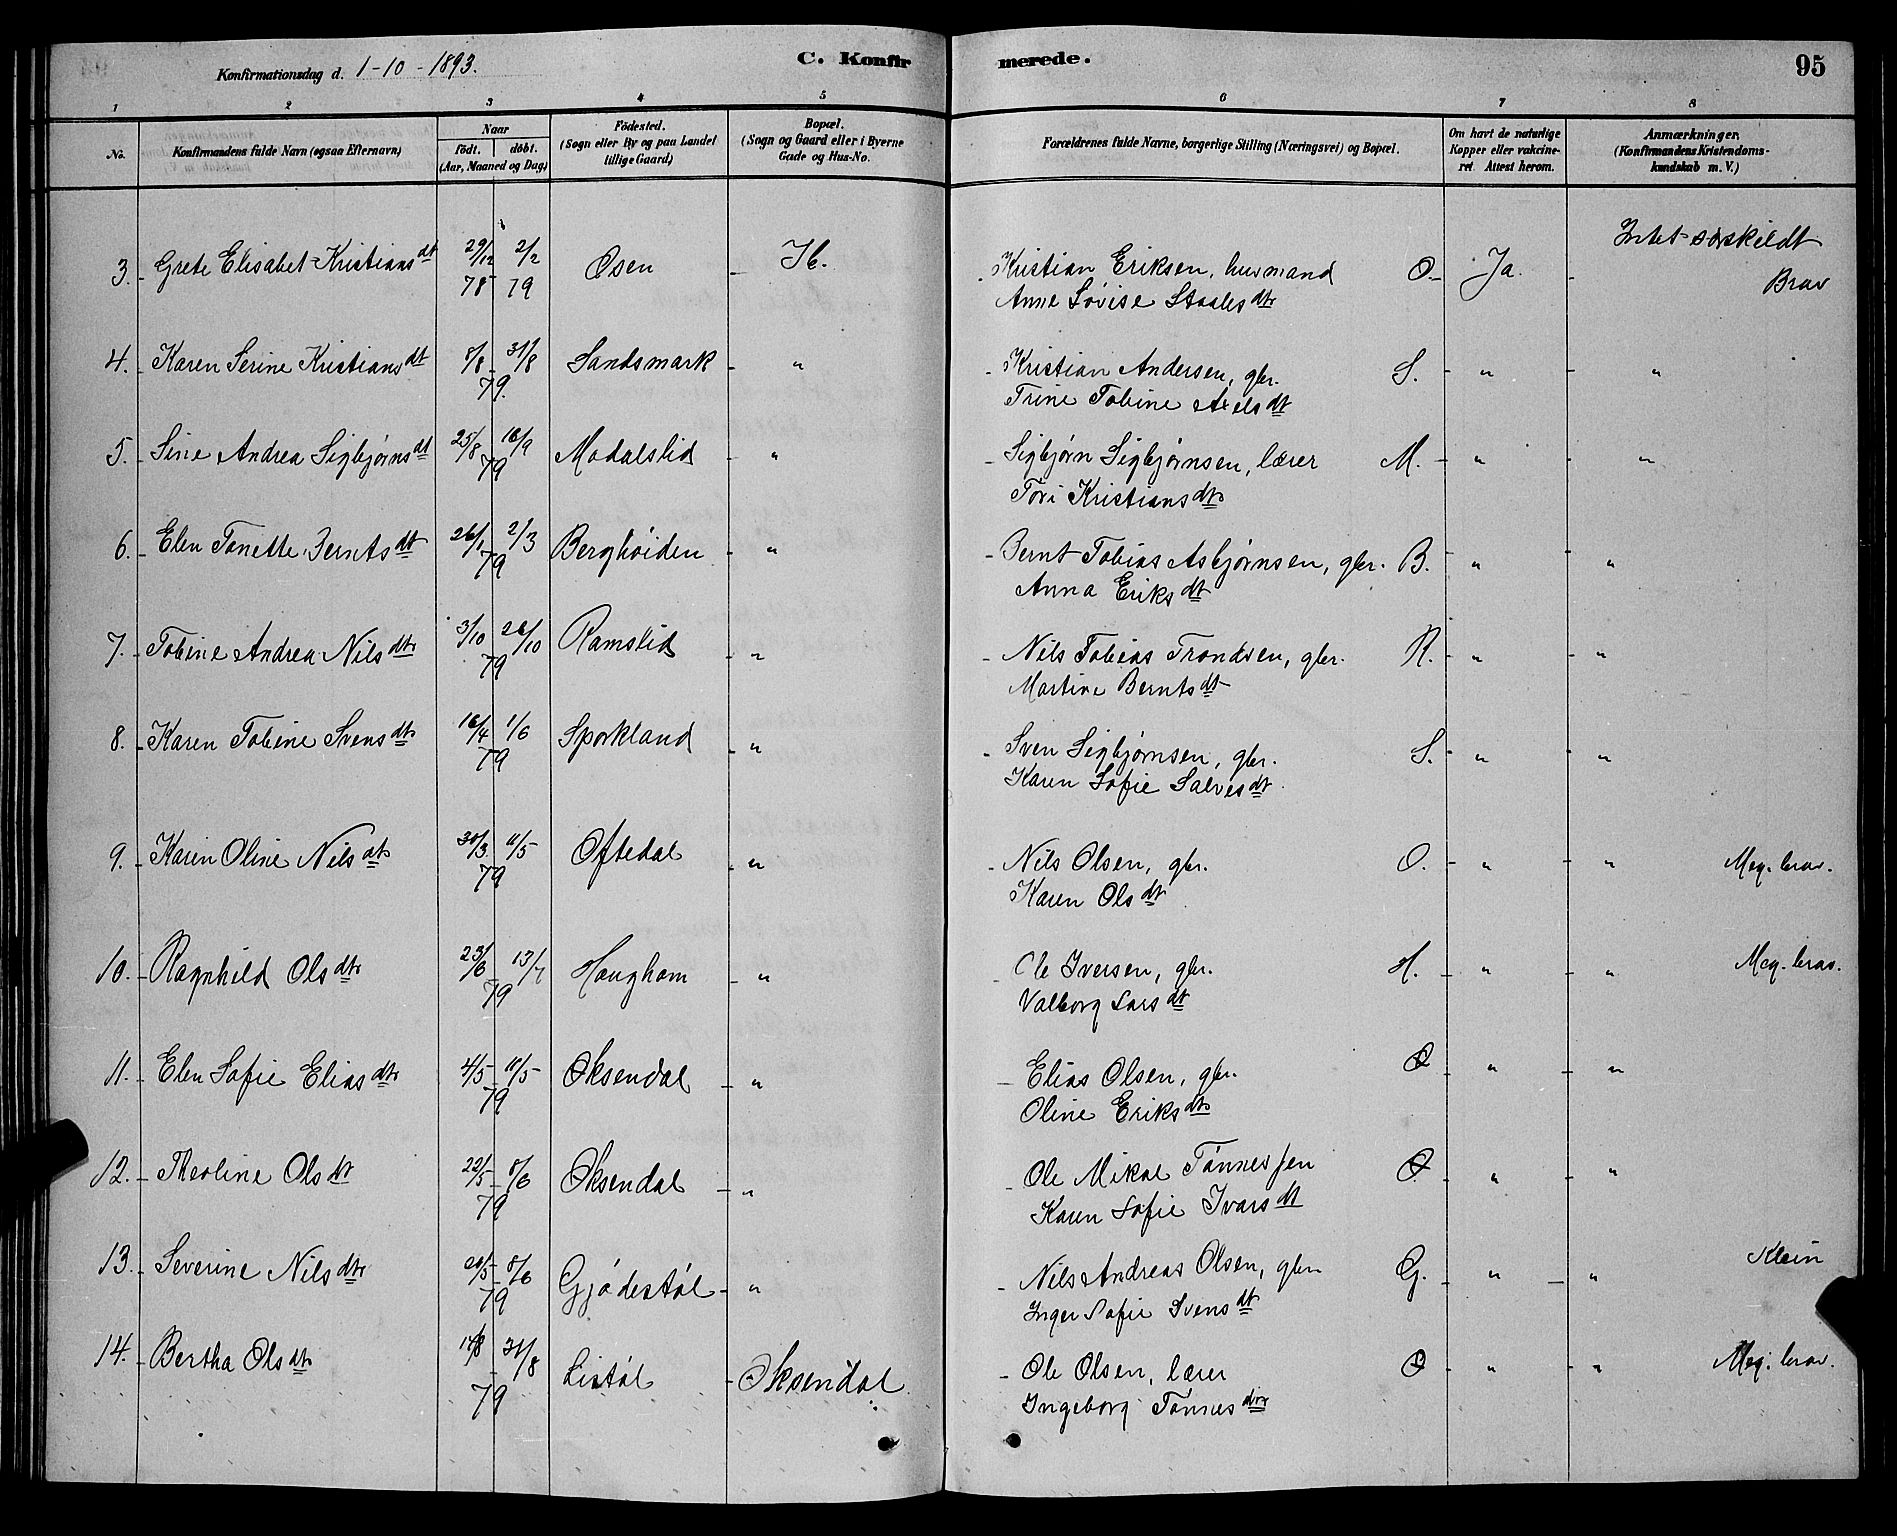 Konfirmationsdag d. 1-10-1893.
C. Konfir
merede.
95
1 2 3 4 5 6 7 8
No.
Konfirmandens fulde Navn (ogsaa Efternavn)
Naar
født. døbt.
(Aar, Maaned og Dag)
Fødested.
(Sogn eller By og paa Landet
tillige Gaard)
Bopæl.
(Sogn og Gaard eller i Byerne
Gade og Hus-No.
Forældrenes fulde Navne, borgerlige Stilling (Næringsvei) og Bopæl.
Om havt de naturlige
Kopper eller vakcine-
ret. Attest herom.
Anmærkninger.
(Konfirmandens Kristendoms-
kundskab m. V.)
3. Grete Elisabet Kristiansdt 29/12 2/2 Øsen H. Kristian Eriksen, husmand Ø. Ja. Intet særskildt
78 79 Anne Lovise Staalesdtr Brav
4. Karen Serine Kristiansdt 8/8 31/8 Sandsmark " Kristian Andersen, gbr. S. " "
79. Trine Tobine Axelsdt
5. Sine Andrea Sigbjørnsdt 25/8 16/9 Modalslid " Sigbjørn Sigbjørnsen, lærer M. " "
79 Tori Kristiansdtr
6. Elen Tonette Berntsdt 26/1 2/3 Berghøiden " Bernt Tobias Asbjørnsen, gbr. B. " "
79 Anna Eriksdt
7. Tobine Andrea Nilsdtr 3/10 26/10 Ramslid " Nils Tobias Trondsen, gbr. R. " "
79 Martine Berntsdt
8. Karen Tobine Svensdtr 16/4 1/6 Sporkland " Sven Sigbjørnsen, gbr. S. " "
79 Karen Sofie Salvesdt.
9. Karen Oline Nilsdtr 30/3 11/5 Oftedal " Nils Olsen, gbr. O. " " Meg. brav.
79 Karen Olsdtr
10. Ragnhild Olsdtr 23/6 13/7 Haugham " Ole Iversen, gbr. H. " " Meg. brav.
79 Valborg Larsdt
11. Elen Sofie Eliasdtr 4/5 11/5 Øksendal " Elias Olsen, gbr. Ø " "
79 Oline Eriksdtr
12. Theoline Olsdt 22/5 8/6 Øksendal " Ole Mikal Tønnessen Ø " "
79 Karen Sofie Ivarsdt
13. Severine Nilsdtr 20/5 8/6 Gjødestøl " Nils Andreas Olsen, gbr. G. " " Klein
79 Inger Sofie Svensdt
14. Bertha Olsdtr 31/8 Listøl Øksendal Ole Olsen, lærer Ø " " Meg. brav.
79 Ingeborg Tønnesdtr